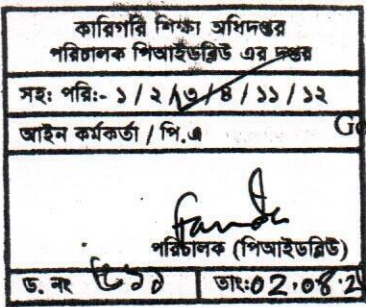 কারিগরি শিক্ষা অধিদপ্তর
পরিচালক পিআইডব্লিউ এর দপ্তর
সহ: পরি:- ১ / ২ / ৩ / ৪ / ১১ / ১২
আইন কর্মকর্তা / পি.এ
Go
পরিচালক (পিআইডব্লিউ)
ড. নং
তাং: 02.08.2